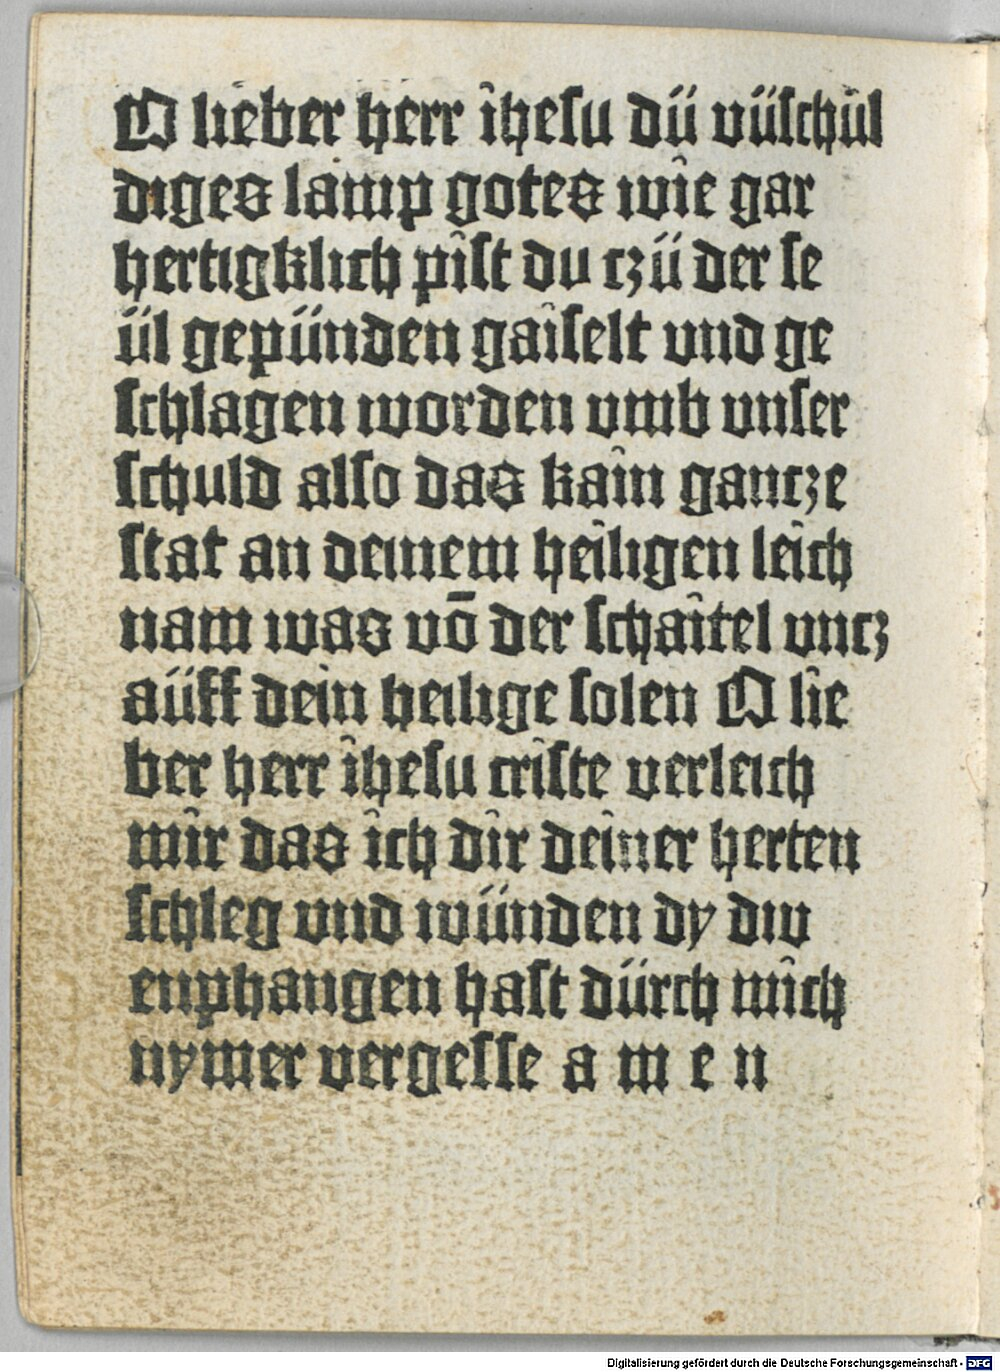 O lieber herr ihesu dü vüschul
diges lamp gotes wie gar
hertigklich pist du czü der se
ül gepünden gaiselt vnd ge
schlagen worden vmb vnser
schuld also das kain gancze
stat an deinem heiligen leich
nam was vō der schaitel vncz
aüff dein heilige solen O lie
ber herr ihesu criste verleich
mir das ich dir deiner herten
schleg vnd wünden dy diu
enphangen hast dürch mich
nymer vergesse a m e n
Digitalisierung gefördert durch die Deutsche Forschungsgemeinschaft - DFG